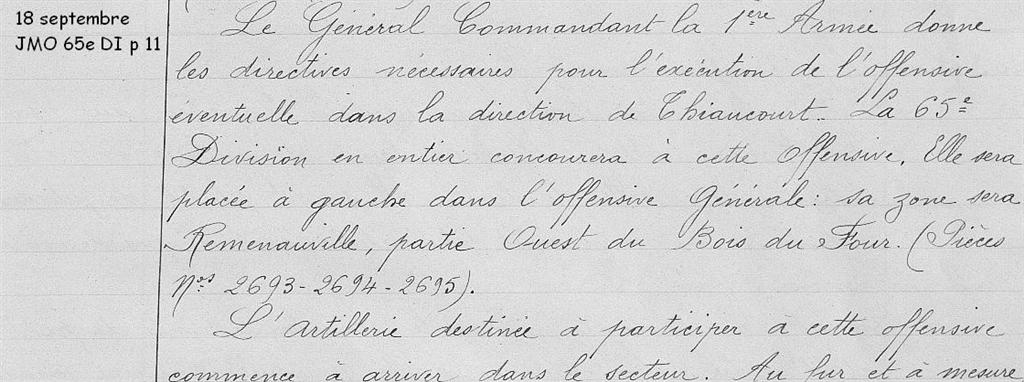 18 septembre
JMO 65e DI p 11
Le Général Commandant la 1ère Armée donne
les directives nécessaires pour l'exécution de l'offensive
éventuelle dans la direction de Thiaucourt. La 65e
Division en entier concourera à cette Offensive. Elle sera
placée à gauche dans l'offensive Générale: sa zone sera
Remenauville, partie Ouest du Bois du Four. (Pièces
Nos 2693-2694-2695).
L'Artillerie destinée à participer à cette offensive
commence à arriver dans le secteur. Au fur et à mesure